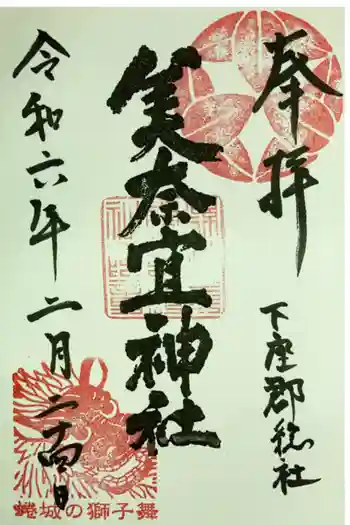 奉拝
下座郡総社
美奈宜神社
令和六年二月二十四日
蜷城の獅子舞